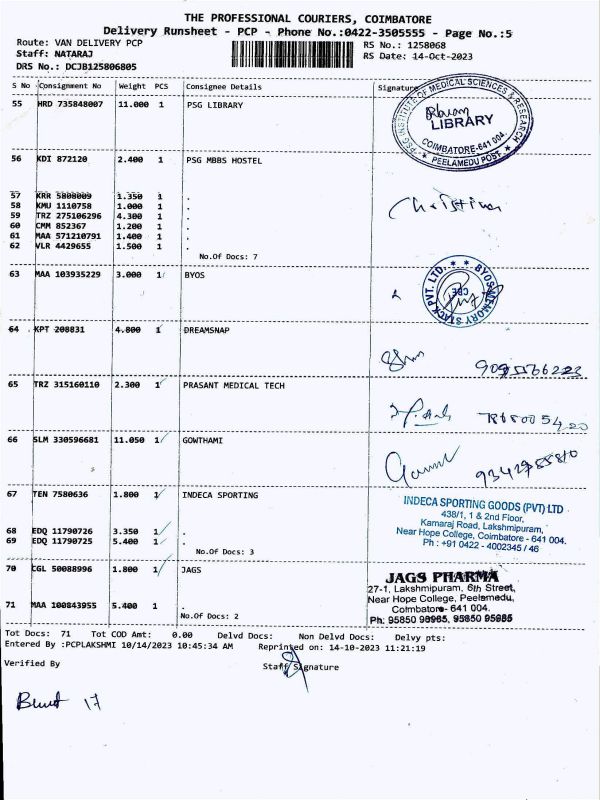 THE PROFESSIONAL COURIERS, COIMBATORE
Delivery Runsheet - PCP - Phone No.:0422-3505555 - Page No.:5
Route: VAN DELIVERY PCP RS No.: 1258068
Staff: NATARAJ RS Date: 14-Oct-2023
DRS No.: DCJB125806805
S No Consignment No Weight PCS Consignee Details Signature
55 HRD 735848007 11.000 1 PSG LIBRARY
PSG INSTITUTE OF MEDICAL SCIENCES & RESEARCH
LIBRARY
COIMBATORE-641 004.
* PEELAMEDU POST *
56 KDI 872120 2.400 1 PSG MBBS HOSTEL
57 KRR 5808009 1.350 1 .
58 KMU 1110758 1.000 1 .
59 TRZ 275106296 4.300 1 .
60 CMM 852367 1.200 1 .
61 MAA 571210791 1.400 1 .
62 VLR 4429655 1.500 1 .
No.Of Docs: 7
63 MAA 103935229 3.000 1 BYOS
* BYOS MEMORY STACK PVT. LTD. *
CBE
64 KPT 208831 4.800 1 DREAMSNAP
65 TRZ 315160110 2.300 1 PRASANT MEDICAL TECH
66 SLM 330596681 11.050 1 GOWTHAMI
67 TEN 7580636 1.800 1 INDECA SPORTING
INDECA SPORTING GOODS (PVT) LTD
438/1, 1 & 2nd Floor,
Kamaraj Road, Lakshmipuram,
Near Hope College, Coimbatore - 641 004.
Ph : +91 0422 - 4002345 / 46
68 EDQ 11790726 3.350 1 .
69 EDQ 11790725 5.400 1 .
No.Of Docs: 3
70 CGL 50088996 1.800 1 JAGS
JAGS PHARMA
27-1, Lakshmipuram, 6th Street,
Near Hope College, Peelamedu,
Coimbatore- 641 004.
Ph: 95850 95985
71 MAA 100843955 5.400 1 .
No.Of Docs: 2
Tot Docs: 71 Tot COD Amt: 0.00 Delvd Docs: Non Delvd Docs: Delvy pts:
Entered By :PCPLAKSHMI 10/14/2023 10:45:34 AM Reprinted on: 14-10-2023 11:21:19
Verified By Staff Signature
17